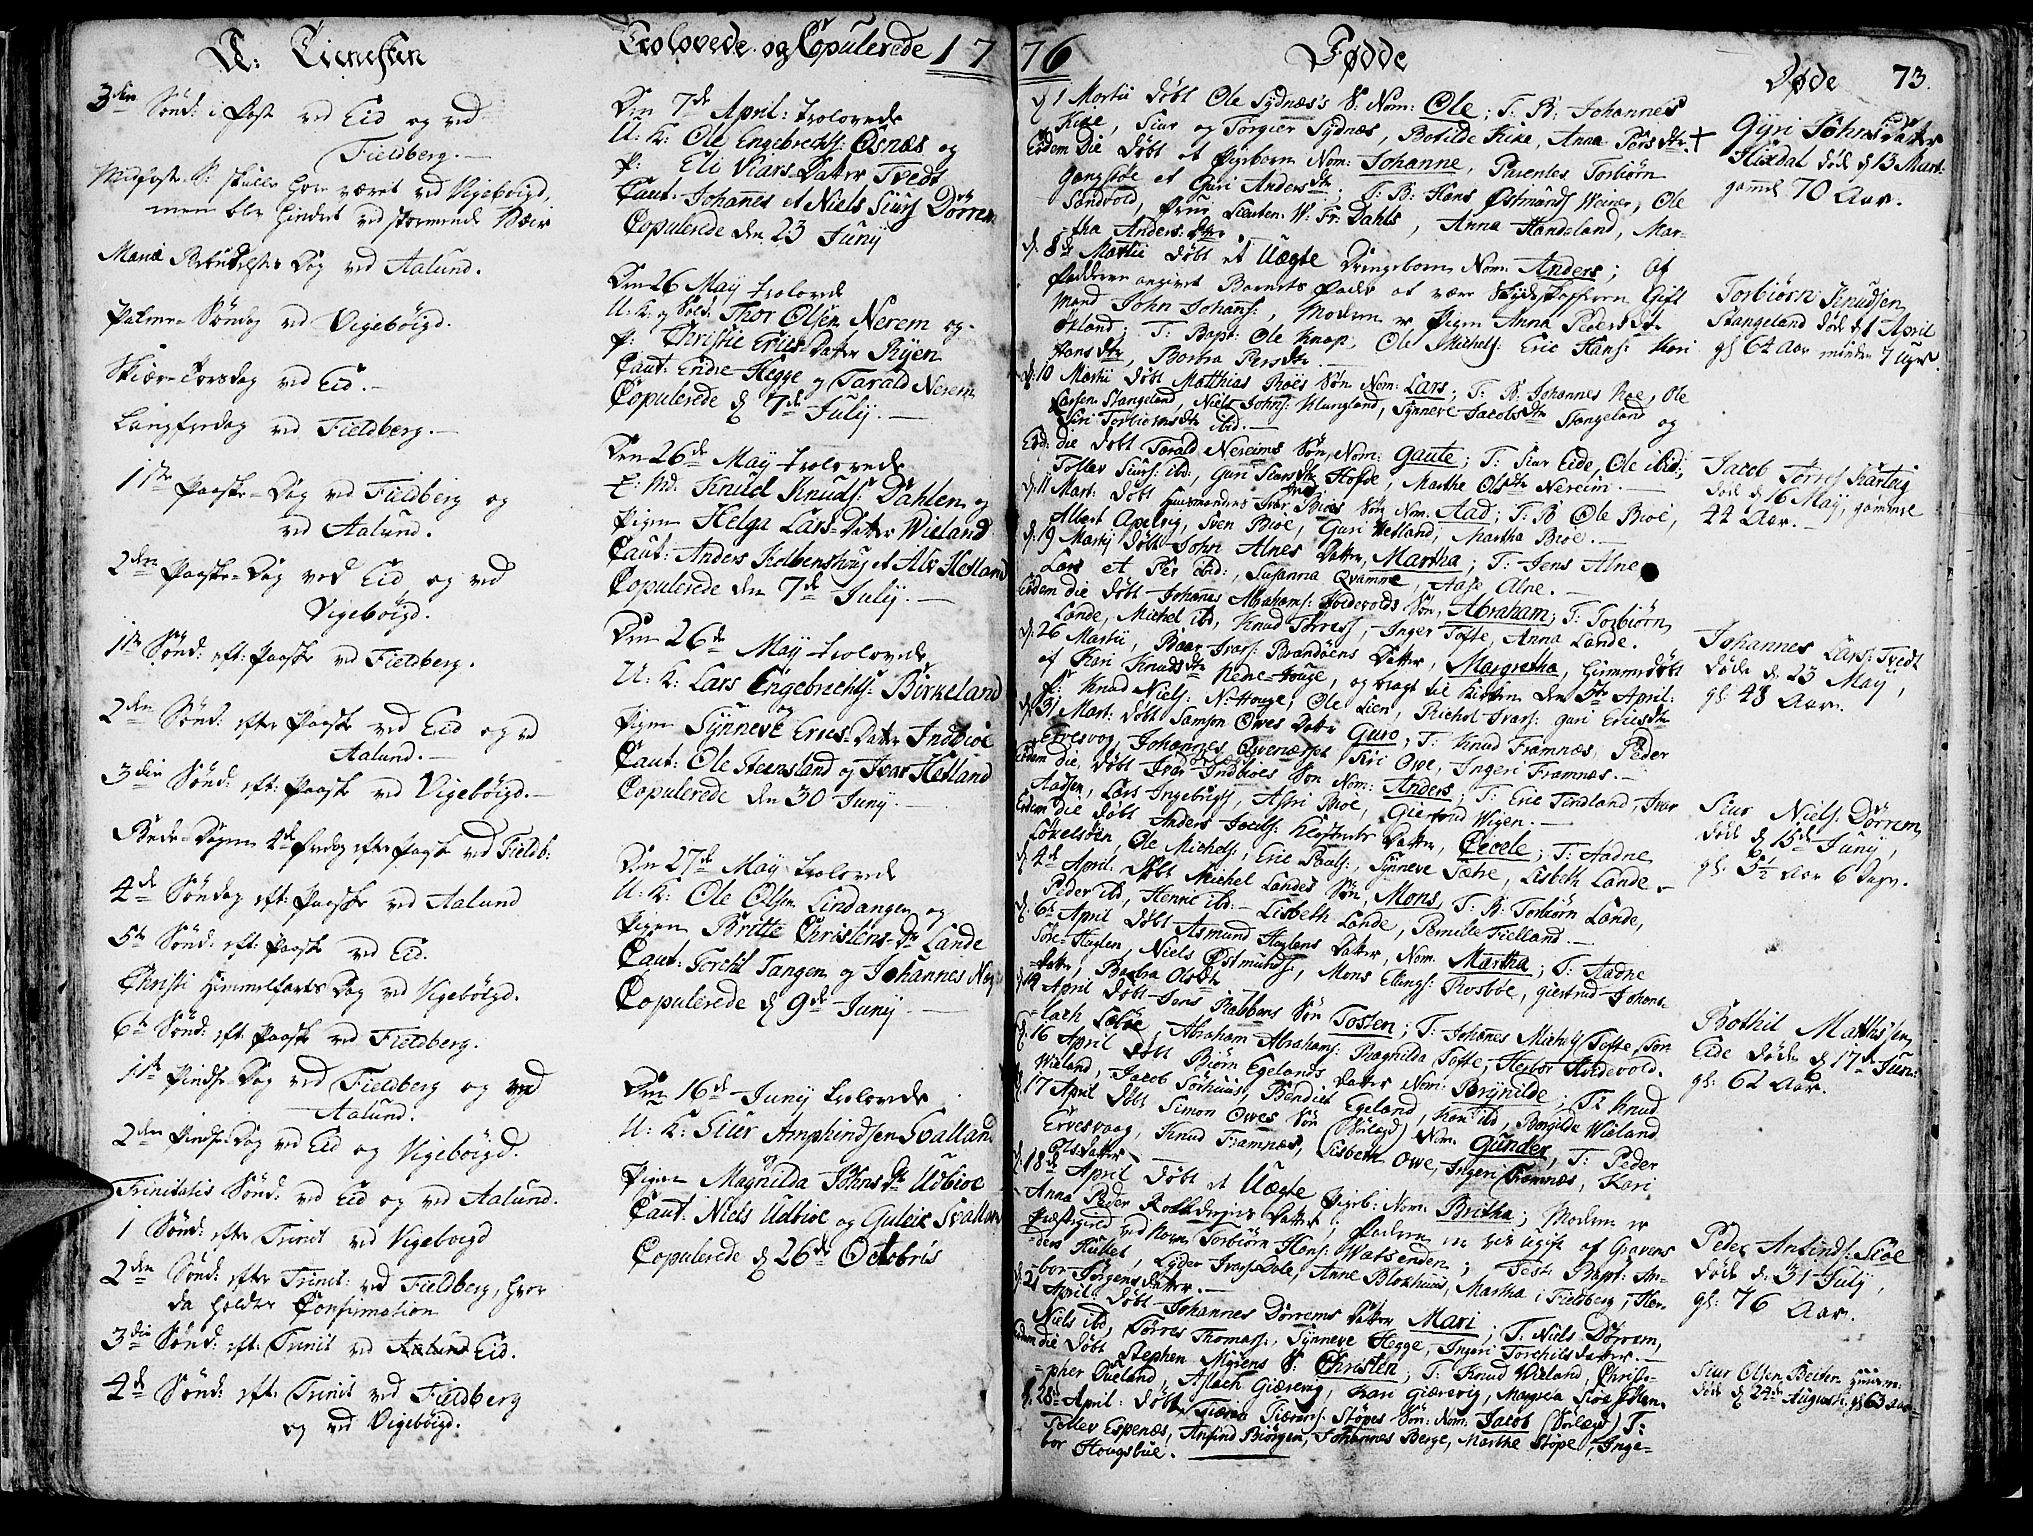 A: Tienesten
3die Sönd: i Fast. ved Eid og ved
Fieldberg.
Midfaste-S: skulle have været ved Vigeböigd,
men blev hindret ved stormende Veir
Mariæ Bebudelses Dag ved Aalund.
Palme-Söndag ved Vigeböigd.
Skiær-Torsdag ved Eid.
Langfredag ved Fieldberg.
1ste Paaske-Dag ved Fieldberg og
ved Aalund.
2den Paaske-Dag ved Eid og ved
Vigeböigd.
1ste Sönd: eft: Paaske ved Fieldberg.
2den Sönd: efter Paaske ved Eid og ved
Aalund.
3die Sönd: eft: Paaske ved Vigeböigd.
Bede-Dagen 4de Fredag efter Paaske ved Fieldb:
4de Söndag eft: Paaske ved Aalund
5te Sönd: eft: Paaske ved Eid.
Christi Himmelfarts Dag ved Vigeböigd.
6te Sönd: eft: Paaske ved Fieldberg.
1ste Pindse-Dag ved Fieldberg og ved
Aalund.
2den Pindse-Dag ved Eid og Vigeböigd.
Trinitatis Sönd: ved Eid og ved Aalund.
1 Sönd: efter Trinit ved Vigeboigd
2den Sönd: efter Trinit: ved Fieldberg, hvor
da holdtes Confirmation
3die Sönd: eft: Trinit ved Aalund Eid.
4de Sönd: eft: Trinit ved Fieldberg
og ved Vigebögd.
Trolovede og Copulerede 17
Den 7de April: trolovede
U: K: Ole Engebrechts: Osnæs og
P: Eli Viars-Datter Tvedt
Caut: Johanes et Niels Siurs Dörrem
Copulerede den 23 Junÿ
Den 26 Maÿ trolovede
U: K: og Sold: Thor Olsen Nerem og
P: Christie Erics-Datter Rÿen
Caut: Endre Hegge og Tarald Nerem
Copulerede d 7de Julÿ.
Den 26de Maÿ trolovede
E: Md: Knud Knuds: Dahlen og
Pigen Helga Lars-Datter Wieland
Caut: Anders Kolbenshuus et Alv Hetland
Copulerede den 7de Julÿ.
Den 26de Maÿ trolovede
U: K: Lars Engebrechts: Birkeland
og
Pigen Sÿnneve Erics-Datter Indbioe
Caut: Ole Steensland og Ivar Hetland
Copulerede den 30 Junÿ.
Den 27de Maÿ trolovede
U: K: Ole Olsen Lindangen og
Pigen Britte Christens-Dr Lande
Caut: Torchil Tangen og Johannes
Copulerede d 9de Junÿ
Den 16de Junÿ trolovede
U: K: Siur Amphindsen Svalland
og
Pigen Magnilda Johns Dr Udbioe
Caut: Niels Udbioe og Guleik Svalland
Copulerede d 26de Octobris
76 Fødde
d 1 Martii döbt Ole Sydnæs's S: Nom: Ole; T: B: Johannes
Kixe, Siur og Torgier Sydnæs, Botilde Kixe, Anna Pers Dtr.
Eodem Die döbt et Pigebarn Nom: Johanne, Parentes Torbiörn
et Guri Anders Dtr; T: B: Hans Østmunds Weiner, Ole
Sandvold, Frue Lieuten: W: Fr: Dahls, Anna Handeland, Mar-
tha Anders: Datter
d: 8de Martii döbt et Uægte Drengebarn Nom: Anders; Af
Faderen angivet Barnets Fader at være Gift
Mand John Johans:, Moderen er Pigen Anna Peders Dtr
Økland; T: Bapt: Ole Knap, Ole Michels: Eric Hans: Kari
Hans Dtr, Bortha Pers Dtr
d: 10 Martii döbt Matthias Roes Sön Nom: Lars; T: B: Johannes Roe, Ole
Larsen Stangeland, Niels Johns: Klungland, Synneve Jacobs Dtr Stangeland og
Siri Torbiorns Dtr ibid.
Eod: die döbt Torald Nereims Sön, Nom: Gaute; T: Siur Eide, Ole ibid:,
Tollev Siurs: ibd:, Guri Siurs Dtr Hofde, Marthe Ols Dtr Nereim.
d: 11 Mart: döbt Huusmandens Ivar Bioes Sön Nom: Aad; T: B Ole Bioe,
Albert Apelvig, Sven Bioe, Guri Hetland, Martha Bioe.
d: 19 Martÿ döbt John Alnes Datter, Martha; T: Jens Alne
Lars et Per ibid:, Susanna Qvamme, Aase Alne.
Eodem die döbt Johanes Abrahams: Holdevolds Sön, Abraham; T: Torbiörn
Lande, Michel ibd, Knud Torress, Inger Tofte, Anna Lande.
d: 26 Martii, Baar Ivars: Brandöens Datter, Margretha, hiemmedöbt
af Kari Knuds Dtr Nedre-Houge, og bragt til Kirken den 5te April.
F: Knud Niels: N:Houge, Ole Lien, Richol Ivars: Guri Erics Dtr
d: 31 Mart: döbt Samson Owes Datr Guro; T: Knud Framnæs, Peder
Ervesvog, Johannes Qvernæsset Siri Owe, Ingeri Framnæs.
Eodem die, döbt Ivar Indbioes Sön Nom: Anders; T: Eric Tindland, Iver
Aadsen, Lars Ingebrigts, Astri Bioe, Giertrud Wigen.
Eodem die döbt Anders Klosteret Datter, Cecele; T: Aadne
Økelsöen, Ole Michels:, Eric Povls:, Synneve Sætre, Lisbeth Lande.
d 4de April döbt Michel Landes Sön, Mons, T: B: Torbiörn Lande,
Peder ibd, Henne ibd: Lisbeth Lande, Pernille Fielland.
d: 6te April döbt Asmund Haglens Datter, Nom. Martha; T: Aadne
Söre-Haglen, Niels Østmunds, Mons Ellings: Rosboe, Giertrud Johans-
Datter, Bertha Ols Dtr
d: 14 April döbt Jens Rabbens Sön Tosten; T: Johanes Michels Tofte, Tor-
lach Loløe, Abraham Abrahams: Ragnilda Tofte, Herbor Hordevold.
d: 16 April döbt Biörn Egelands Datter Nom: Brÿnilde; T: Knud
Wieland, Jacob Sörhuus, Bendict Egeland, Kari ibd, Borgilde Wieland
d 17 April döbt Simon Owes Sön Nom: Gunder; T: Peder
Ervesvaag, Knud Framnæs, Lisbeth Owe, Ingeri Framnæs, Kari
Olsdatter
d. 18de April döbt et Uægte Pigeb: Nom: Britha; Moderen er
Anna Peder Datter; Faderen er
Torbiörn Hans: Watsenden; Test: Bapt: An-
ders Huset, Lyder Ivars Bole, Anne Blokhuus, Martha i Fieldberg, Her-
bor Jörgensdatter.
d: 21 April döbt Johannes Dörrems Datter Mari; T: Niels Dörrem,
Niels ibd, Törres Thomass:, Synneve Hegge, Ingeri Torchilsdatter.
Eodem die döbt Stephen Myrens S: Christen; T: Knud Wieland, Christo-
pher Øveland, Aslach Giæreng, Kari Giærevig, Margrea
d: 28de April: döbt Tiæran Tiærans: Stöpes Sön: Nom: Jacob T:
Tollev Espenæs, Anfind Biörgen, Johannes Berge, Marthe Stöpe, Inge-
bor Hougsbue.
Døde 73.
+ Gÿri Johnsdatter
Hixdal döde d 13 Mart:
gamel 70 Aar.
Torbiörn Knudsen
Stangeland döde d 1 April
gl 64 Aar mindre 7 Uger.
Jacob Torres Skartvig
döde d 16 Maÿ, gammel
44 Aar.
Johannes Lars: Tvedt
döde d. 23 Maÿ,
gl. 48 Aar.
Siur Niels: Dörrem
döde d 15de Junÿ,
gl. 5½ Aar 6 Dage.
Bothil Matthisen
Eide döde d 17de Jun:
gl: 62 Aar.
Peder Anfinds: Siøe
döde d. 31 Julÿ,
gl: 76 Aar.
Siur Olsen gamm:
döde d 24de Augusti gl 63 Aar